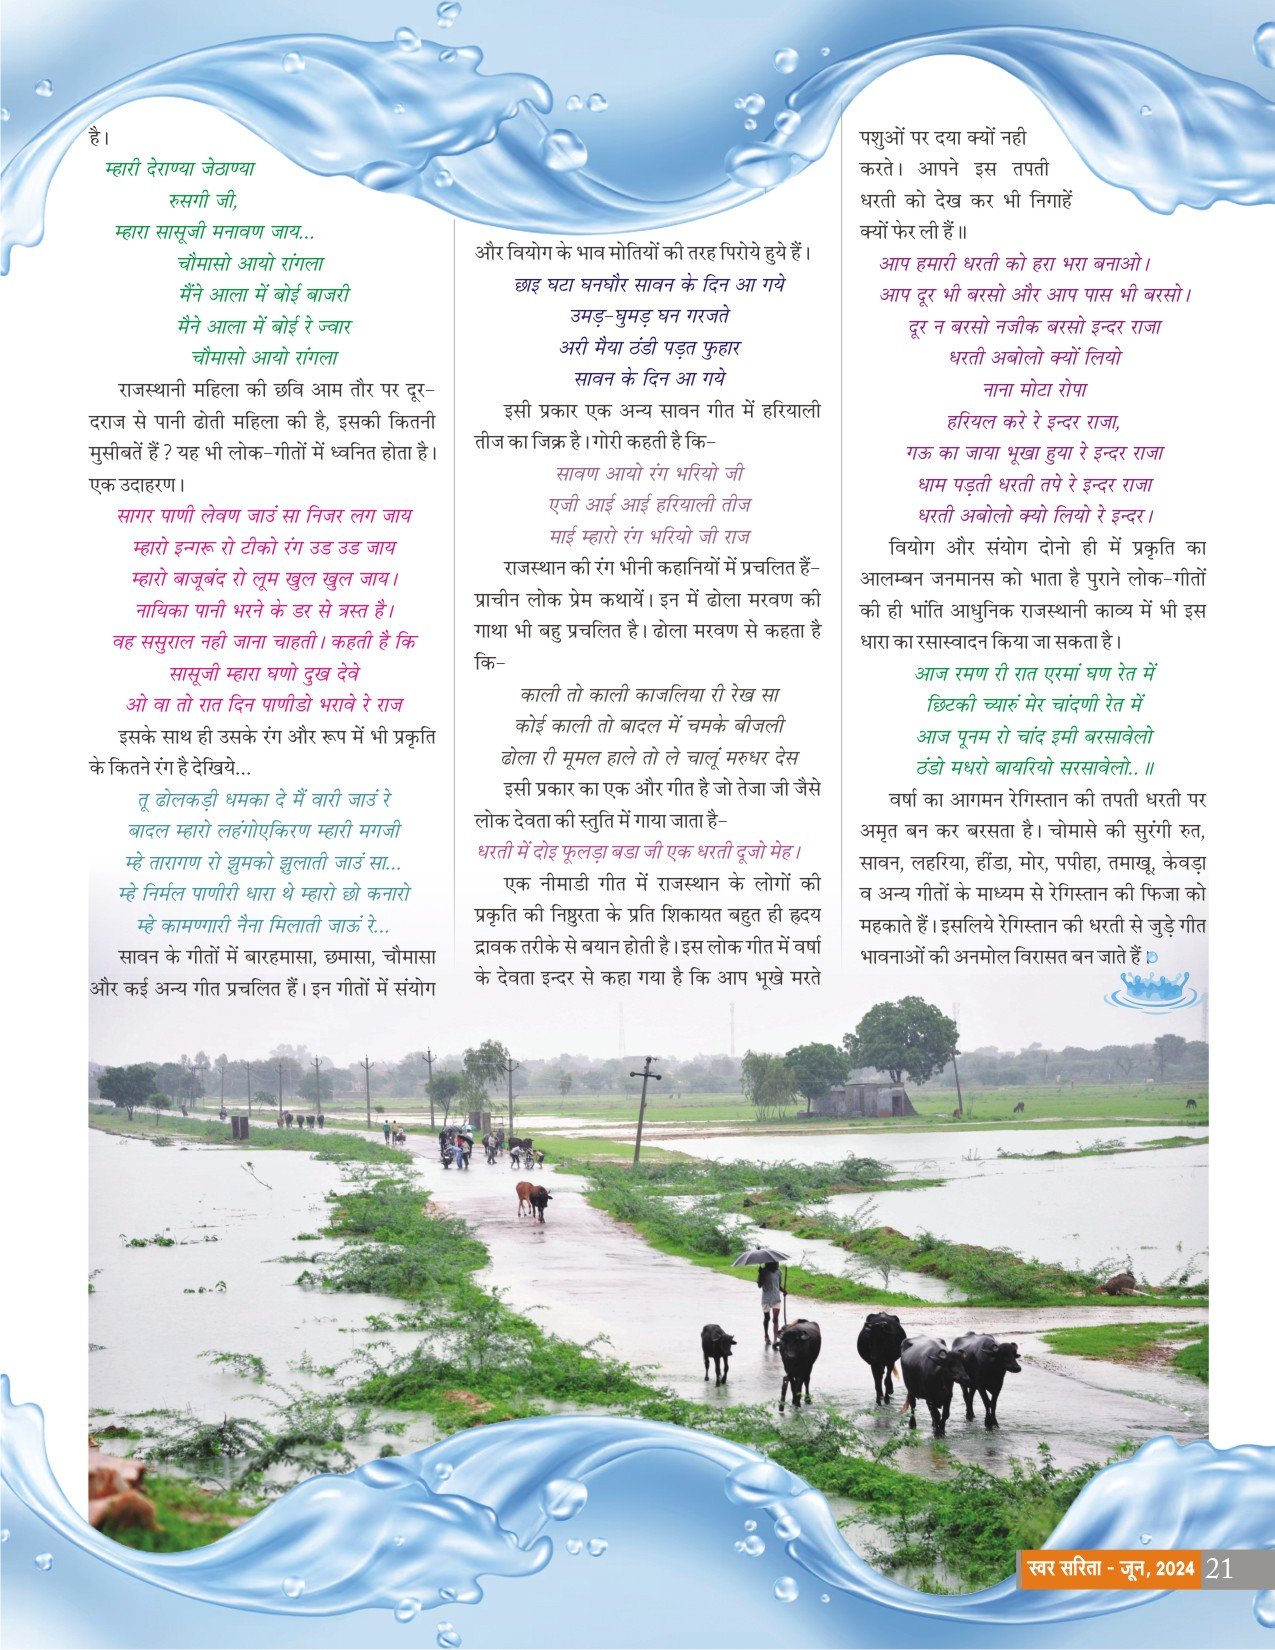 है।
म्हारी देराण्या जेठाण्या
रुसगी जी,
म्हारा सासूजी मनावण जाय...
चौमासो आयो रांगला
मैंने आला में बोई बाजरी
मैने आला में बोई रे ज्वार
चौमासो आयो रांगला
राजस्थानी महिला की छवि आम तौर पर दूर-
दराज से पानी ढोती महिला की है, इसकी कितनी
मुसीबतें हैं ? यह भी लोक-गीतों में ध्वनित होता है।
एक उदाहरण।
सागर पाणी लेवण जाउं सा निजर लग जाय
म्हारो इन्गरू रो टीको रंग उड उड जाय
म्हारो बाजूबंद रो लूम खुल खुल जाय।
नायिका पानी भरने के डर से त्रस्त है।
वह ससुराल नही जाना चाहती। कहती है कि
सासूजी म्हारा घणो दुख देवे
ओ वा तो रात दिन पाणीडो भरावे रे राज
इसके साथ ही उसके रंग और रूप में भी प्रकृति
के कितने रंग है देखिये...
तू ढोलकड़ी धमका दे मैं वारी जाउं रे
बादल म्हारो लहंगोएकिरण म्हारी मगजी
म्हे तारागण रो झुमको झुलाती जाउं सा...
म्हे निर्मल पाणीरी धारा थे म्हारो छो कनारो
म्हे कामणगारी नैना मिलाती जाऊं रे...
सावन के गीतों में बारहमासा, छमासा, चौमासा
और कई अन्य गीत प्रचलित हैं। इन गीतों में संयोग
और वियोग के भाव मोतियों की तरह पिरोये हुये हैं।
छाइ घटा घनघौर सावन के दिन आ गये
उमड़-घुमड़ घन गरजते
अरी मैया ठंडी पड़त फुहार
सावन के दिन आ गये
इसी प्रकार एक अन्य सावन गीत में हरियाली
तीज का जिक्र है। गोरी कहती है कि-
सावण आयो रंग भरियो जी
एजी आई आई हरियाली तीज
माई म्हारो रंग भरियो जी राज
राजस्थान की रंग भीनी कहानियों में प्रचलित हैं-
प्राचीन लोक प्रेम कथायें। इन में ढोला मरवण की
गाथा भी बहु प्रचलित है। ढोला मरवण से कहता है
कि-
काली तो काली काजलिया री रेख सा
कोई काली तो बादल में चमके बीजली
ढोला री मूमल हाले तो ले चालूं मरुधर देस
इसी प्रकार का एक और गीत है जो तेजा जी जैसे
लोक देवता की स्तुति में गाया जाता है-
धरती में दोइ फूलड़ा बडा जी एक धरती दूजो मेह।
एक नीमाडी गीत में राजस्थान के लोगों की
प्रकृति की निष्ठुरता के प्रति शिकायत बहुत ही हृदय
द्रावक तरीके से बयान होती है। इस लोक गीत में वर्षा
के देवता इन्दर से कहा गया है कि आप भूखे मरते
पशुओं पर दया क्यों नही
करते। आपने इस तपती
धरती को देख कर भी निगाहें
क्यों फेर ली हैं॥
आप हमारी धरती को हरा भरा बनाओ।
आप दूर भी बरसो और आप पास भी बरसो।
दूर न बरसो नजीक बरसो इन्दर राजा
धरती अबोलो क्यों लियो
नाना मोटा रोपा
हरियल करे रे इन्दर राजा,
गऊ का जाया भूखा हुया रे इन्दर राजा
धाम पड़ती धरती तपे रे इन्दर राजा
धरती अबोलो क्यो लियो रे इन्दर।
वियोग और संयोग दोनो ही में प्रकृति का
आलम्बन जनमानस को भाता है पुराने लोक-गीतों
की ही भांति आधुनिक राजस्थानी काव्य में भी इस
धारा का रसास्वादन किया जा सकता है।
आज रमण री रात एरमां घण रेत में
छिटकी च्यारुं मेर चांदणी रेत में
आज पूनम रो चांद इमी बरसावेलो
ठंडो मधरो बायरियो सरसावेलो..॥
वर्षा का आगमन रेगिस्तान की तपती धरती पर
अमृत बन कर बरसता है। चोमासे की सुरंगी रुत,
सावन, लहरिया, हींडा, मोर, पपीहा, तमाखू, केवड़ा
व अन्य गीतों के माध्यम से रेगिस्तान की फिजा को
महकाते हैं। इसलिये रेगिस्तान की धरती से जुड़े गीत
भावनाओं की अनमोल विरासत बन जाते हैं।
स्वर सरिता - जून, 2024 21